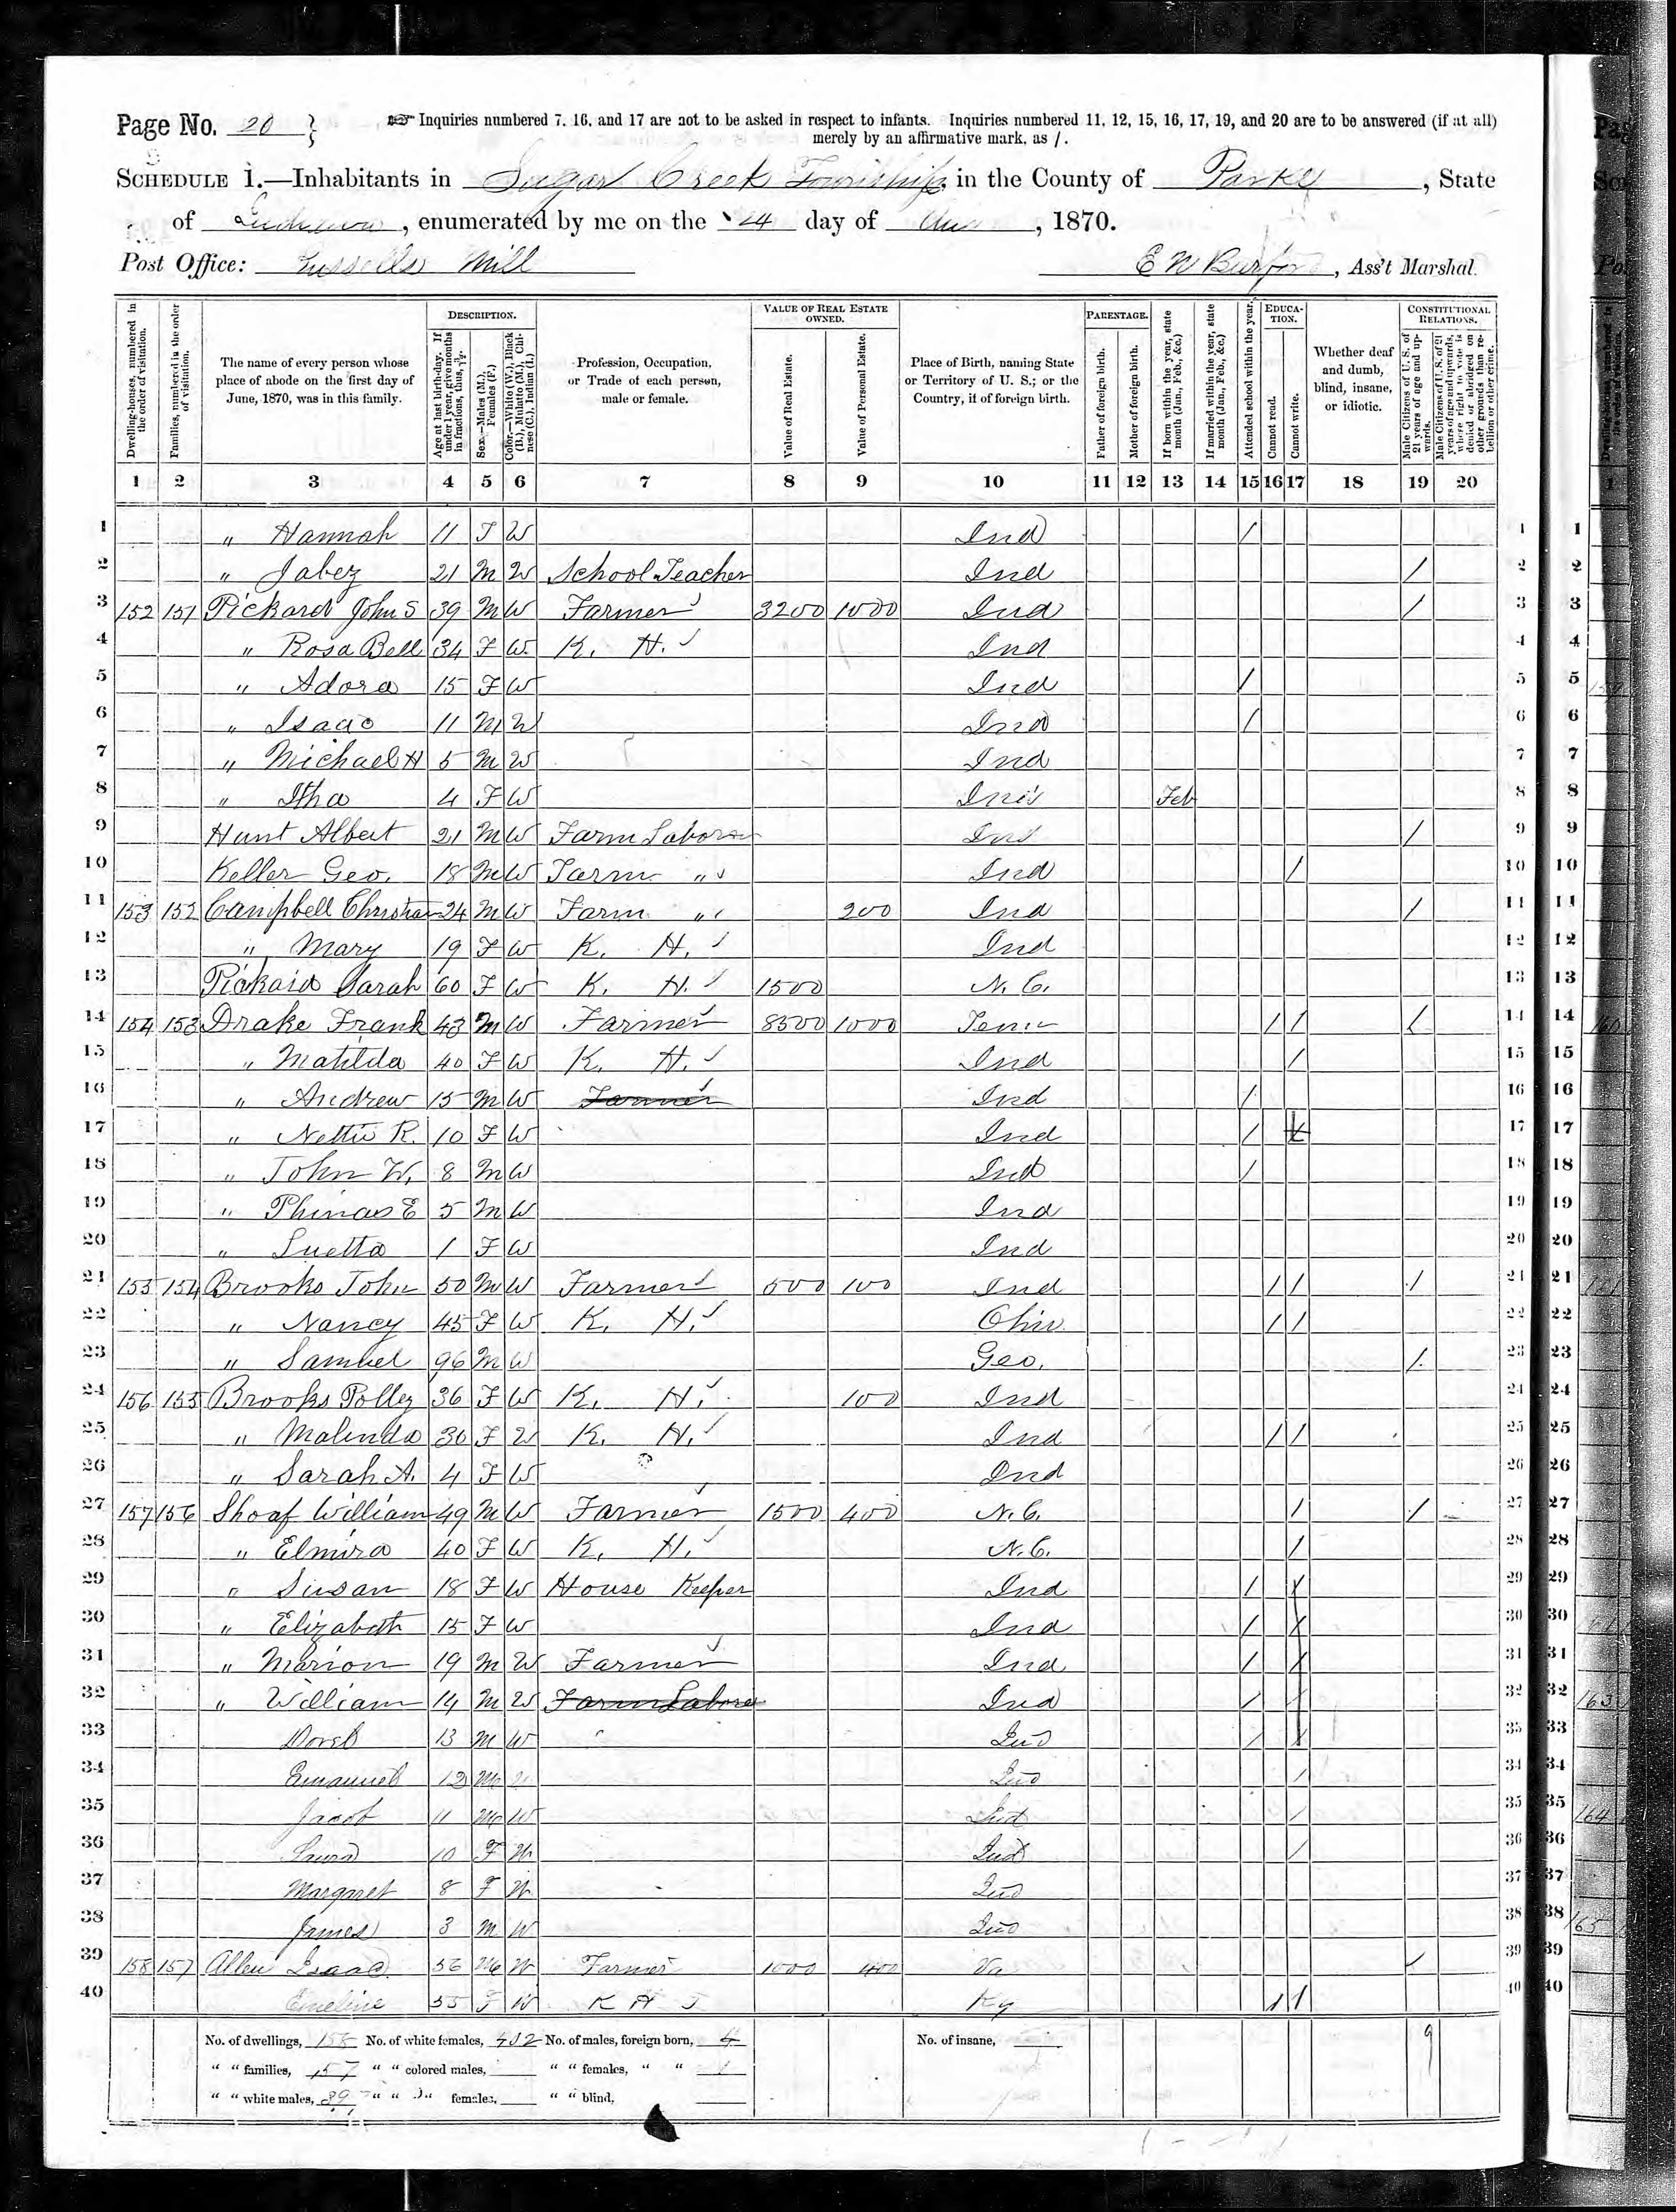 Page No. 20 }
Inquiries numbered 7, 16, and 17 are not to be asked in respect to infants. Inquiries numbered 11, 12, 15, 16, 17, 19, and 20 are to be answered (if at all)
merely by an affirmative mark, as /.
SCHEDULE 1.—Inhabitants in Sugar Creek Township, in the County of Parke, State
of Indiana, enumerated by me on the 24 day of Aug, 1870.
Post Office: Russells Mill
E W Burford, Ass't Marshal.
Dwelling-houses, numbered in the order of visitation.
Families, numbered in the order of visitation.
The name of every person whose place of abode on the first day of June, 1870, was in this family.
DESCRIPTION.
Age at last birth-day. If under 1 year, give months in fractions, thus, 3/12.
Sex.—Males (M.), Females (F.)
Color.—White (W.), Black (B.), Mulatto (M.), Chinese (C.), Indian (I.)
Profession, Occupation, or Trade of each person, male or female.
VALUE OF REAL ESTATE OWNED.
Value of Real Estate.
Value of Personal Estate.
Place of Birth, naming State or Territory of U. S.; or the Country, if of foreign birth.
PARENTAGE.
Father of foreign birth.
Mother of foreign birth.
If born within the year, state month (Jan., Feb., &c.)
If married within the year, state month (Jan., Feb., &c.)
Attended school within the year.
EDUCATION.
Cannot read.
Cannot write.
Whether deaf and dumb, blind, insane, or idiotic.
CONSTITUTIONAL RELATIONS.
Male Citizens of U. S. of 21 years of age and upwards.
Male Citizens of U. S. of 21 years of age and upwards, where right to vote is denied or abridged on other grounds than rebellion or other crime.
1 2 3 4 5 6 7 8 9 10 11 12 13 14 15 16 17 18 19 20
1 " Hannah 11 F W Ind / 1
2 " Jabez 21 M W School Teacher Ind / 2
3 152 151 Pickard John S 39 M W Farmer 3200 1000 Ind / 3
4 " Rosa Bell 34 F W K. H. Ind 4
5 " Adora 15 F W Ind / 5
6 " Isaac 11 M W Ind / 6
7 " Michael H 5 M W Ind 7
8 " Itha 4 F W Ind Feb 8
9 Hunt Albert 21 M W Farm Laborer Ind / 9
10 Keller Geo. 18 M W Farm " Ind / 10
11 153 152 Campbell Christian 24 M W Farm " 200 Ind / 11
12 " Mary 19 F W K. H. Ind 12
13 Pickard Sarah 60 F W K. H. 1500 N. C. 13
14 154 153 Drake Frank 43 M W Farmer 8500 1000 Tenn / / / 14
15 " Matilda 40 F W K. H. Ind / 15
16 " Andrew 15 M W Farmer Ind / 16
17 " Nettie R. 10 F W Ind / / 17
18 " John W. 8 M W Ind / 18
19 " Phinas E 5 M W Ind 19
20 " Luetta 1 F W Ind 20
21 155 154 Brooks John 50 M W Farmer 500 100 Ind / / / 21
22 " Nancy 45 F W K. H. Ohio / / 22
23 " Samuel 96 M W Geo. / 23
24 156 155 Brooks Polley 36 F W K. H. 100 Ind 24
25 " Malinda 30 F W K. H. Ind / / 25
26 " Sarah A. 4 F W Ind 26
27 157 156 Shoaf William 49 M W Farmer 1500 400 N. C. / / 27
28 " Elmira 40 F W K. H. N. C. / 28
29 " Susan 18 F W House Keeper Ind / / 29
30 " Elizabeth 15 F W Ind / / 30
31 " Marion 19 M W Farmer Ind / / 31
32 " William 14 M W Farm Laborer Ind / / 32
33 13 M W Ind / / 33
34 Emanuel 12 M W Ind / 34
35 Jacob 11 M W Ind / 35
36 Laura 10 F W Ind / 36
37 Margaret 8 F W Ind 37
38 James 3 M W Ind 38
39 158 157 Allen Isaac 56 M W Farmer 1000 400 Va / 39
40 Emeline 55 F W K H Ky / / 40
No. of dwellings, 158 No. of white females, No. of males, foreign born, No. of insane, 9
" " families, 157 " " colored males, " " females, " "
" " white males, " " " females, " " blind,